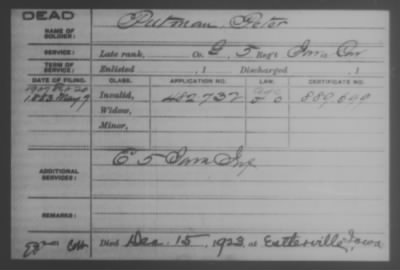 DEAD
NAME OF SOLDIER: Putman Peter
SERVICE: Late rank, Co. E, 5 Reg't Iowa Cav
TERM OF SERVICE: Enlisted , 1 Discharged , 1
DATE OF FILING. CLASS. APPLICATION NO. LAW. CERTIFICATE NO.
1907 Feb 20 Age
1883 May 7 Invalid, 482,732 889,699
Widow,
Minor,
ADDITIONAL SERVICES: E 5 Iowa Inf
REMARKS:
Died Dec. 15, 1923, at Estherville, Iowa